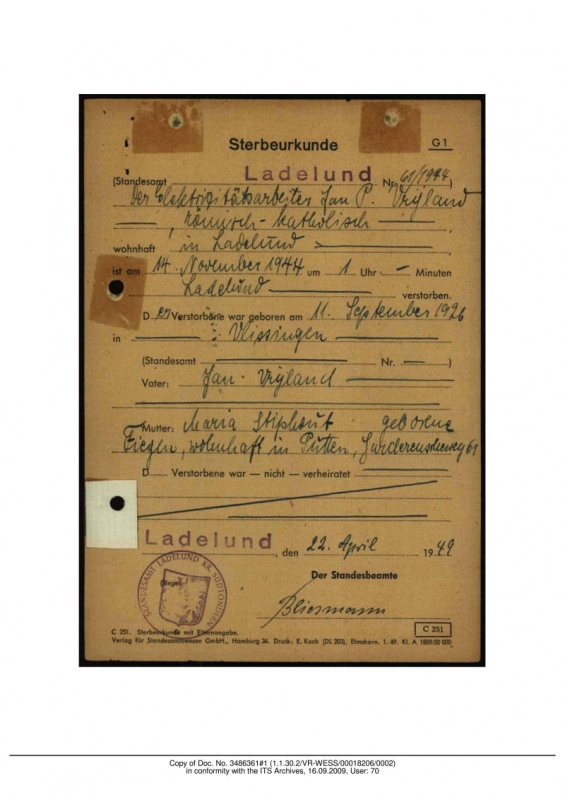 Sterbeurkunde G 1
(Standesamt Ladelund Nr. 61/1944)
Der Elektrizitätsarbeiter Jan P. Vrÿland
römisch-katholisch
wohnhaft in Ladelund
ist am 14. November 1944 um 1 Uhr — Minuten
Ladelund verstorben.
D er Verstorbene war geboren am 11. September 1926
in Vlissingen
(Standesamt Nr. — )
Vater: Jan Vrÿland
Mutter: Maria Stiphout geborene
Fiegen, wohnhaft in Putten, Harderenscheweg 61
D Verstorbene war — nicht — verheiratet
Ladelund, den 22. April 1949
STANDESAMT LADELUND KR. SÜDTONDERN
(Siegel)
Der Standesbeamte
C 251
C 251. Sterbeurkunde mit Elternangabe.
Verlag für Standesamtswesen GmbH., Hamburg 36. Druck: E. Koch (DL 203), Elmshorn. 1. 49. Kl. A 1889/50 000
Copy of Doc. No. 3486361#1 (1.1.30.2/VR-WESS/00018206/0002)
in conformity with the ITS Archives, 16.09.2009, User: 70